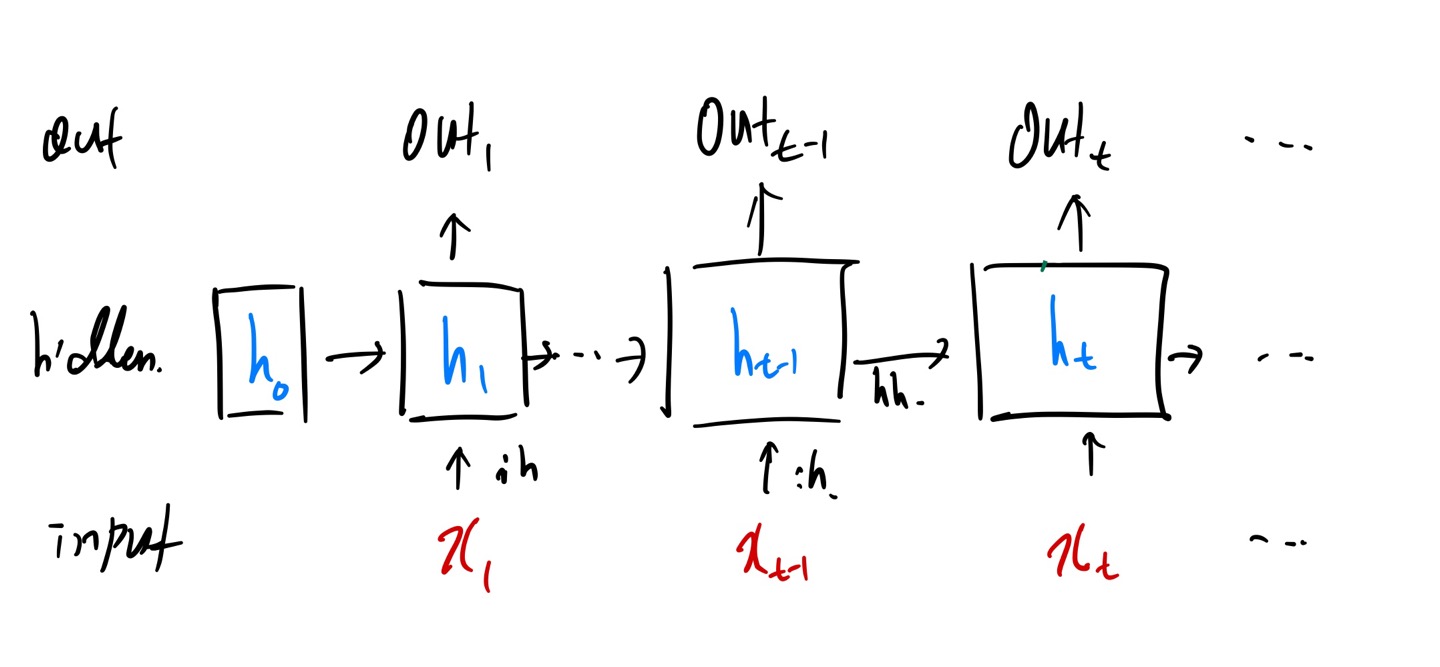 out out₁ out_{t-1} out_t ...
hidden. h₀ h₁ ... h_{t-1} h_t ...
hh.
ih ih.
input x₁ x_{t-1} x_t ...